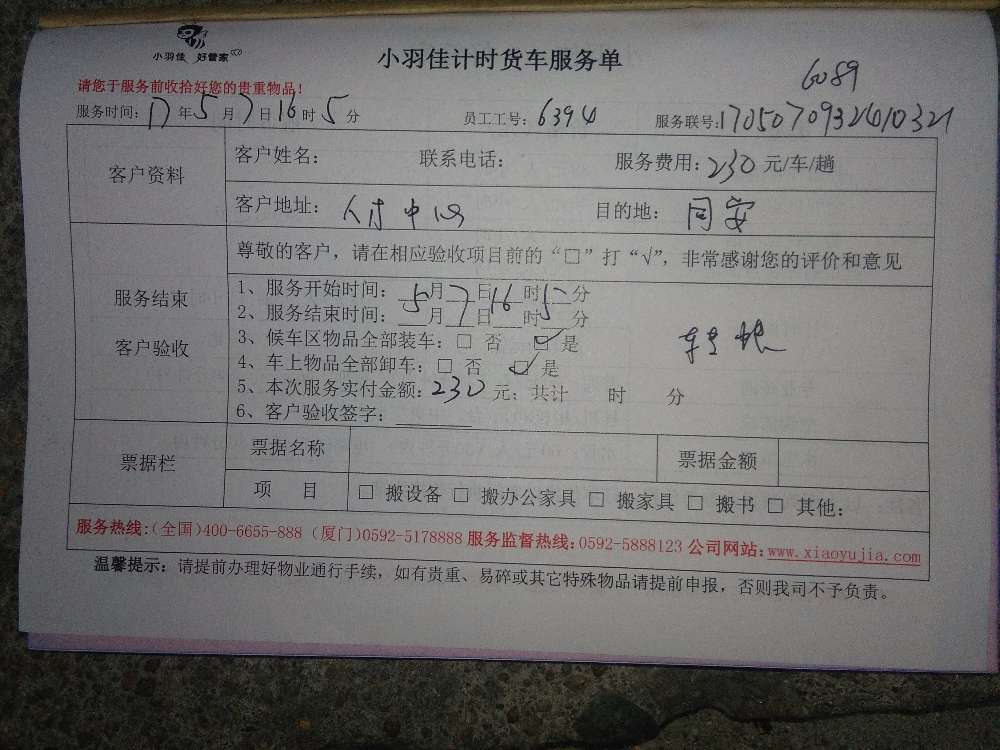 小羽佳 好管家
小羽佳计时货车服务单
6089
请您于服务前收拾好您的贵重物品！
服务时间：17年5月7日16时5分 员工工号：6394 服务联号：1705070932410321
客户资料
客户姓名： 联系电话： 服务费用：230元/车/趟
客户地址：人才中心 目的地：同安
服务结束
客户验收
尊敬的客户，请在相应验收项目前的“□”打“√”，非常感谢您的评价和意见
1、服务开始时间：5月7日16时5分
2、服务结束时间：___月___日___时___分
3、候车区物品全部装车：□ 否 ☑ 是
4、车上物品全部卸车：□ 否 ☑ 是
5、本次服务实付金额：230元；共计 时 分
6、客户验收签字：______
票据栏
票据名称 票据金额
项 目 □ 搬设备 □ 搬办公家具 □ 搬家具 □ 搬书 □ 其他：
服务热线：（全国）400-6655-888（厦门）0592-5178888 服务监督热线：0592-5888123 公司网站：www.xiaoyujia.com
温馨提示：请提前办理好物业通行手续，如有贵重、易碎或其它特殊物品请提前申报，否则我司不予负责。